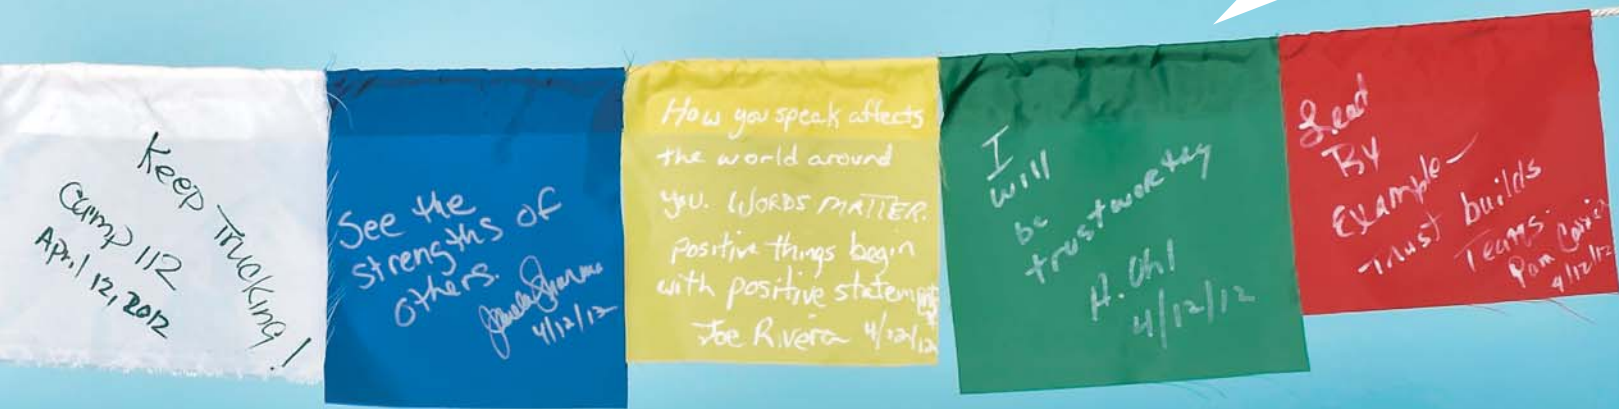 Keep Trucking!
Camp 112
April 12, 2012
See the
strengths of
others.
4/12/12
How you speak affects
the world around
you. WORDS MATTER.
Positive things begin
with positive statements
Joe Rivera 4/12/12
I
will
be
trustworthy
H. Uhl
4/12/12
Lead
By
Example—
Trust builds
Teams.
Pam
4/12/12